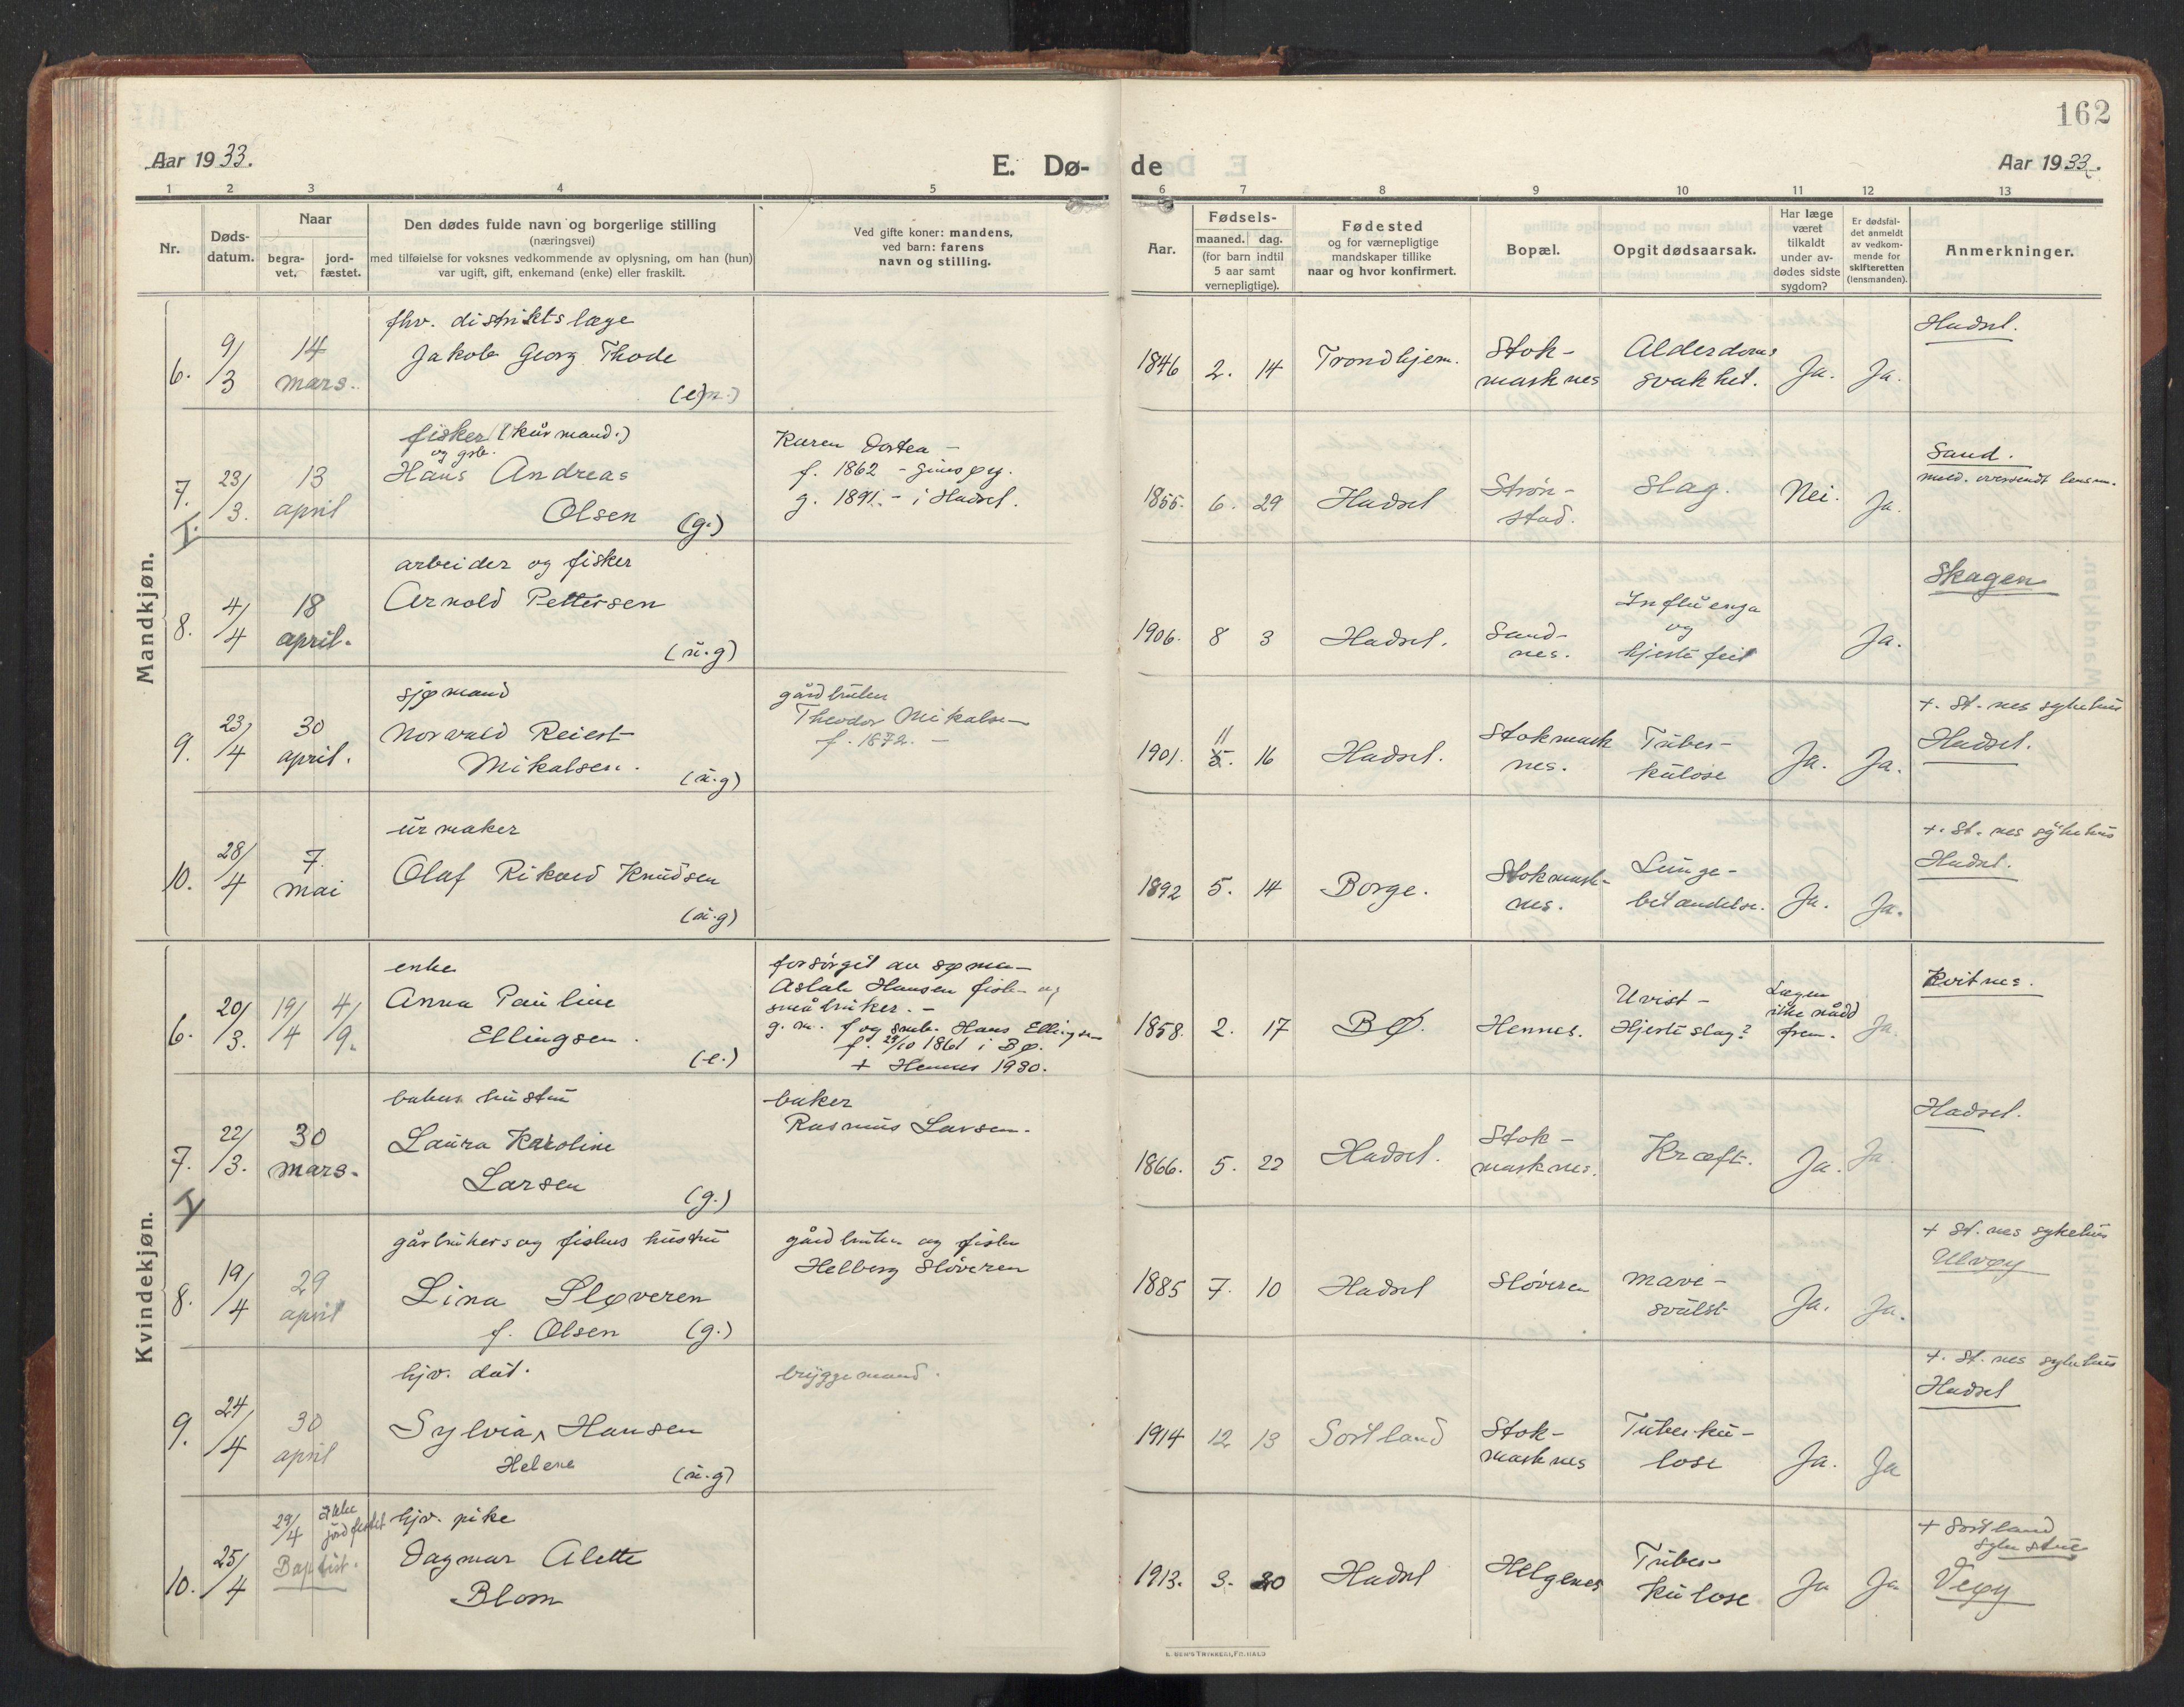 162
Aar 1933.
E. Dø-
de
Aar 1933.
1 2 3 4 5 6 7 8 9 10 11 12 13
Nr.
Døds-
datum.
Naar
begra-
vet.
jord-
fæstet.
Den dødes fulde navn og borgerlige stilling
(næringsvei)
med tilføielse for voksnes vedkommende av oplysning, om han (hun)
var ugift, gift, enkemand (enke) eller fraskilt.
Ved gifte koner: mandens,
ved barn: farens
navn og stilling.
Aar.
Fødsels-
maaned. dag.
(for barn indtil
5 aar samt
vernepligtige).
Fødested
og for værnepligtige
mandskaper tillike
naar og hvor konfirmert.
Bopæl.
Opgit dødsaarsak.
Har læge
været
tilkaldt
under av-
dødes sidste
sygdom?
Er dødsfal-
det anmeldt
av vedkom-
mende for
skifteretten
(lensmanden).
Anmerkninger.
Mandkjøn.
6.
9/3
14
mars.
fhv. distriktslæge
Jakob Georg Thode
1846
2.
14
Trondhjem.
Stok-
marknes
Alderdoms
svakhet.
Ja.
Ja.
Hadsel.
7.
23/3.
13
april
fisker (kårmand.)
og gsb.
Hans Andreas
Olsen (g.)
Karen Dortea -
f. 1862 - Gimsøy.
g. 1891. - i Hadsel.
1855.
6.
29
Hadsel
Strøn-
stad.
Slag.
Nei.
Ja.
Sand.
meld. oversendt lensm.
8.
4/4
18
april.
arbeider og fisker
Arnold Pettersen
(u.g)
1906.
8
3
Hadsel.
Sand-
nes.
Influenza
og
hjertefeil
Ja.
Skagen
9.
23/4
30
april.
sjømand
Norvald Reiert
Mikalsen. (u.g)
gårdbruker
Theodor Mikalsen
f. 1872. -
1901.
11
5.
16
Hadsel.
Stokmark
nes.
Tuber-
kulose
Ja.
Ja.
+. St. nes sykehus
Hadsel.
10.
28/4
7.
mai
urmaker
Olaf Rikard Knudsen
(u.g)
1892
5.
14
Borge.
Stokmark-
nes.
Lunge-
betændelse.
Ja.
Ja.
+. St. nes sykehus
Hadsel.
Kvindekjøn.
6.
20/3.
19/4
4/9.
enke
Anna Pauline
Ellingsen.
(e.)
forsørget av sønnen
Aslak Hansen fisker og
småbruker. -
g. m. f og småb. Hans Ellingsen
f. 23/10 1861 i Bø.
+ Hennes 1930.
1858.
2.
17
BØ.
Hennes.
Uvist -
Hjerteslag?
Lægen
ikke nådd
frem.
Ja.
Kvitnes.
7.
22/3.
30
mars.
bakers hustru
Laura Karoline
Larsen (g.)
baker
Rasmus Larsen.
1866.
5.
22
Hadsel.
Stok-
marknes.
Kræft.
Ja.
Ja.
Hadsel.
8.
19/4
29
april
gårbrukers og fiskers hustru
Lina Sløveren
f. Olsen (g.)
gårdbruker og fisker
Helberg Sløveren
1885
7.
10
Hadsel
Sløveren
mave-
svulst
Ja.
Ja.
+ St. nes sykehus
Ulvøy
9.
24/4
30
april
hjv. dat.
Sylvia Hansen
Helene (u.g)
bryggemand.
1914
12
13
Sortland
Stok-
marknes
Tuberku-
lose
Ja.
Ja
+. St. nes sykehus
Hadsel
10.
25/4
29/4
ikke
jordfestet
Baptist.
hjv. pike
Dagmar Alette
Blom
1913.
3.
20
Hadsel
Helgenes
Tuber-
kulose
Ja
Ja
+ Sortland
sykestue
Vigøy